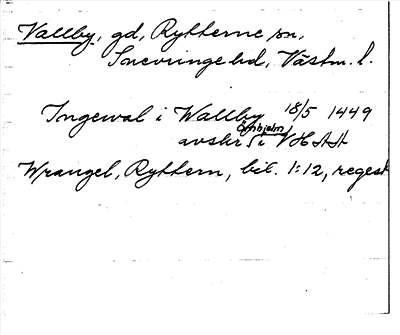 Vallby, gd, Rytterne sn,
Snevringe hd, Västm. l.
Ingewal i Wallby 18/5 1449
avskr (Örnhjelm) i VHAA
Wrangel, Ryttern, bil. 1:12, regest